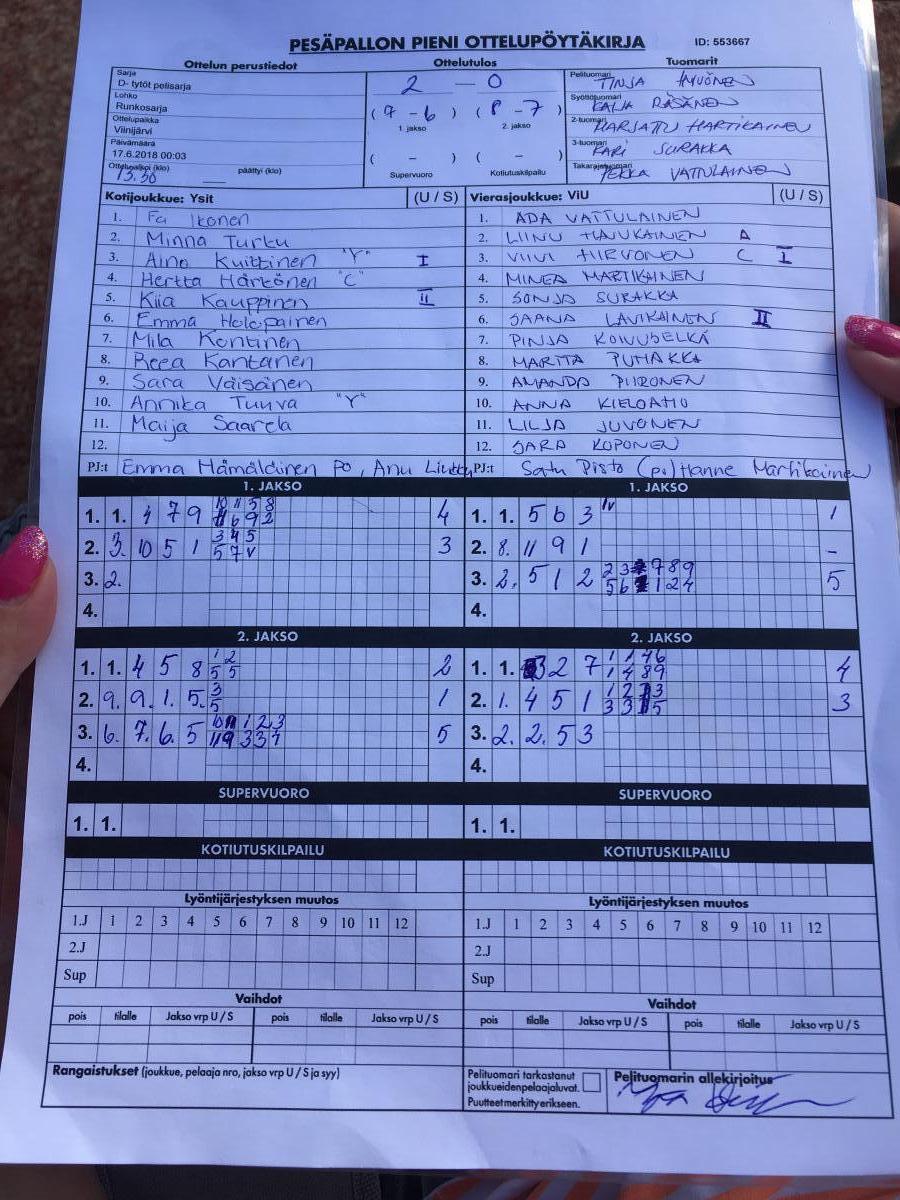 PESÄPALLON PIENI OTTELUPÖYTÄKIRJA ID: 553667
Ottelun perustiedot Ottelutulos Tuomarit
Sarja
D- tytöt pelisarja
Lohko
Runkosarja
Ottelupaikka
Viinijärvi
Päivämäärä
17.6.2018 00:03
13.30 päättyi (klo)
2 — 0
(7 - 6) (8 - 7)
1. jakso 2. jakso
( - ) ( - )
Supervuoro Kotiutuskilpailu
Pelituomari TINJA
Syöttötuomari KAIJA RÄSÄNEN
2-tuomari MARJATTU MARTIKAINEN
3-tuomari KARI SURAKKA
Takarajatuomari PEKKA VATTULAINEN
Kotijoukkue: Ysit (U / S) Vierasjoukkue: ViU (U / S)
1. Ikonen
2. Minna Turku
3. Aino Kuittinen "Y" I
4. Hertta Härkönen "C"
5. Kiia Kauppinen II
6. Emma Holopainen
7. Mila Kontinen
8. Reea Kantanen
9. Sara Väisänen
10. Annika Tuuva "Y"
11. Maija Saarela
12.
PJ:t Emma Hämäläinen po, Anu
1. ADA VATTULAINEN
2. LIINU HAUKAINEN A
3. VIIVI HIRVONEN C I
4. MINEA MARTIKAINEN
5. SONJA SURAKKA
6. SAANA LAVIKAINEN II
7. PINJA KOIVUSELKÄ
8. MARTTA PUHAKKA
9. AMANDA PIIRONEN
10. ANNA KIELOAHO
11. LILJA JUVONEN
12. SARA KOPONEN
PJ:t Satu Pisto (po) Hanne Martikainen
1. JAKSO
1. 1. 4 7 9 10 11 5 8 4
11 6 9 2
2. 3. 10 5 1 3 4 5 3
5 7 v
3. 2.
4.
1. JAKSO
1. 1. 5 6 3 1v 1
2. 8. 11 9 1 -
3. 2. 5 1 2 2 3 7 8 9 5
5 6 1 2 4
4.
2. JAKSO
1. 1. 4 5 8 1 2 2
5 5
2. 9. 9. 1. 5. 3 1
5
3. 6. 7. 6. 5 10 11 1 2 3 5
11 9 3 3 7
4.
2. JAKSO
1. 1. 3 2 7 1 1 4 6 4
1 4 8 9
2. 1. 4 5 1 1 2 3 3
3 3 5
3. 2. 2. 5 3
4.
SUPERVUORO
1. 1.
SUPERVUORO
1. 1.
KOTIUTUSKILPAILU
KOTIUTUSKILPAILU
Lyöntijärjestyksen muutos
1.J 1 2 3 4 5 6 7 8 9 10 11 12
2.J
Sup
Lyöntijärjestyksen muutos
1.J 1 2 3 4 5 6 7 8 9 10 11 12
2.J
Sup
Vaihdot
pois tilalle Jakso vrp U / S pois tilalle Jakso vrp U / S
Vaihdot
pois tilalle Jakso vrp U / S pois tilalle Jakso vrp U / S
Rangaistukset (joukkue, pelaaja nro, jakso vrp U / S ja syy)
Pelituomari tarkastanut
joukkueiden pelaajaluvat.
Puutteet merkitty erikseen.
Pelituomarin allekirjoitus